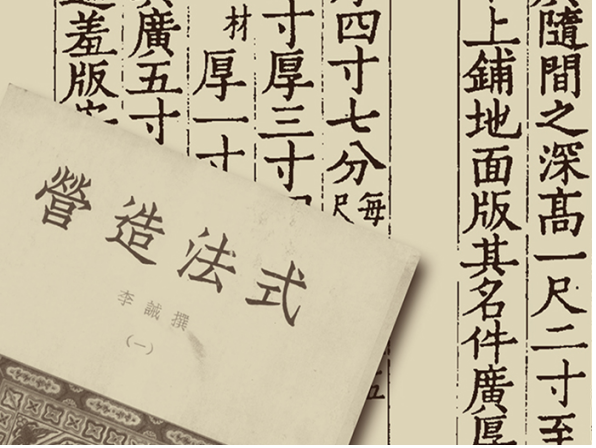 隨間之深高一尺二寸至
上鋪地面版其名件廣厚
四寸七分每
尺
寸厚三寸
材厚一寸
廣五寸
羞版
營造法式
李誡撰
（一）